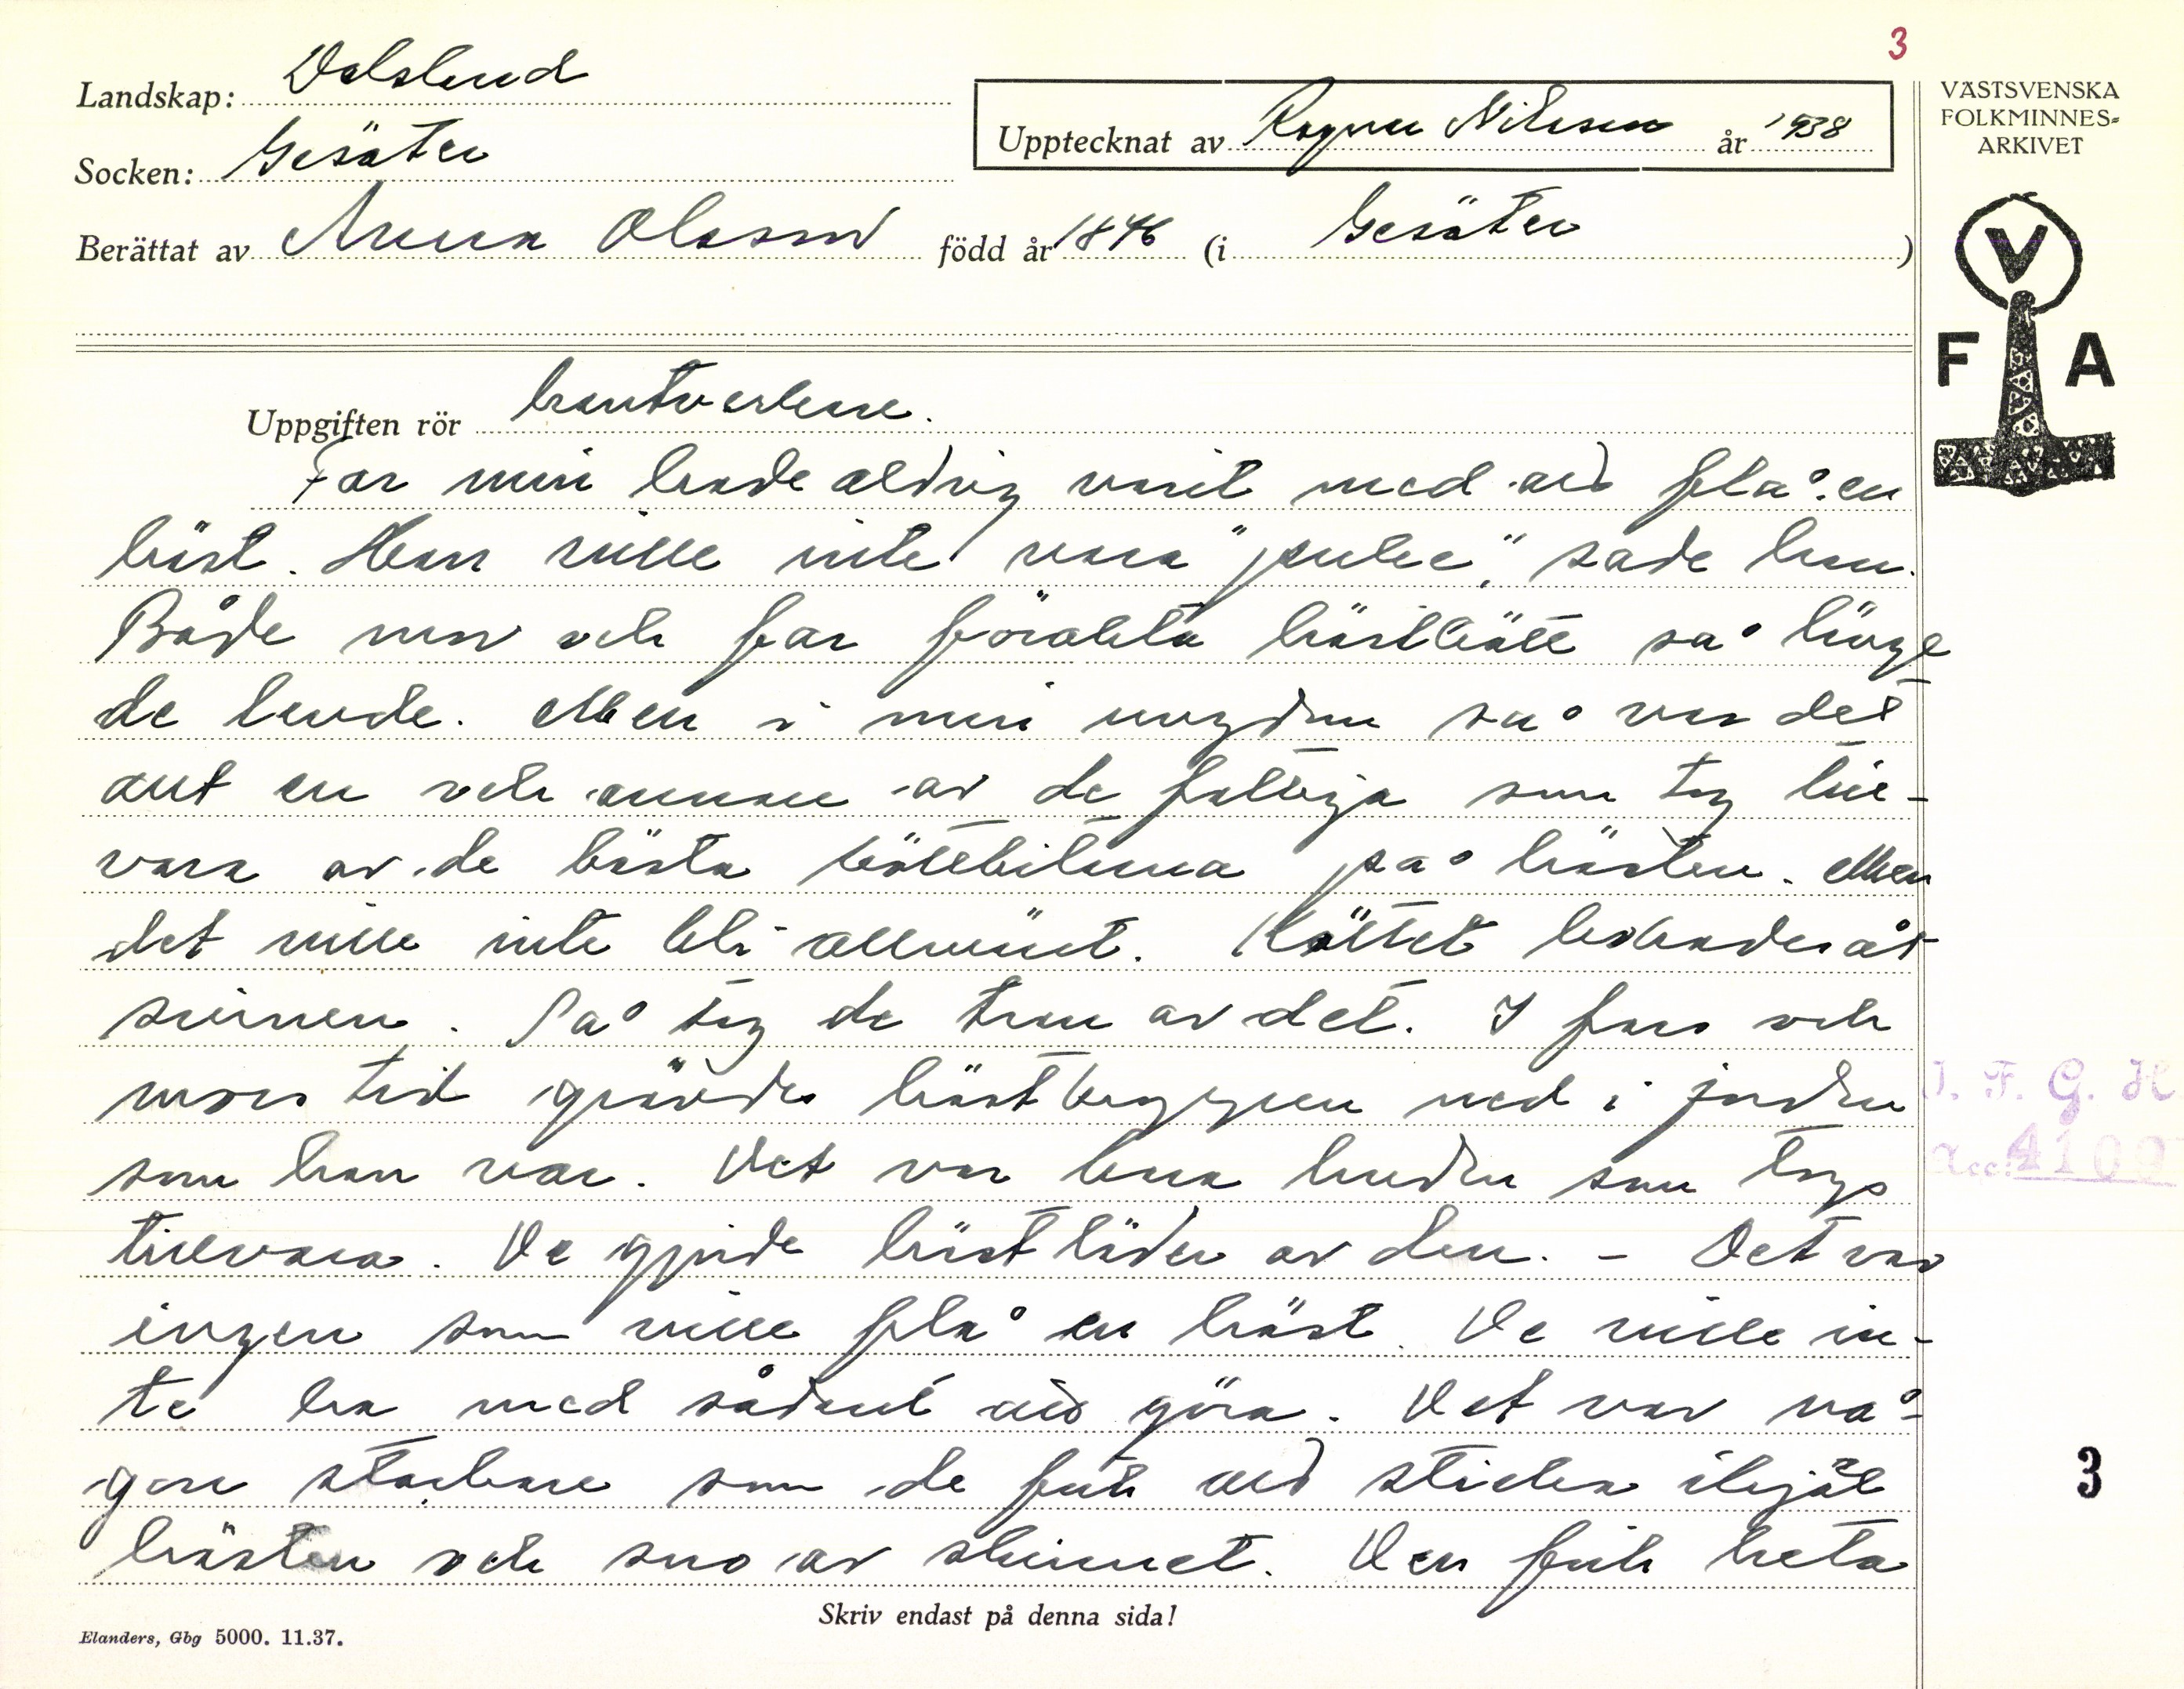 3
Landskap: Dalsland
Upptecknat av Ragnar Nilsson år 1938
VÄSTSVENSKA
FOLKMINNES-
ARKIVET
Socken: Gesäter
Berättat av Anna Olsson född år 1846 (i Gesäter)
V
F A
Uppgiften rör hantverkare.
Far min hade aldrig varit med att flå en
häst. Han ville inte vara "pulec", sade han.
Både mor och far försakta hästkött så länge
de levde. Men i min ungdom så var det
ant en och annan av de fattiga som tog till-
vara av de bästa köttbitarna på hästen. Men
det ville inte bli allmänt. Köttet kokades åt
svinen. Så tog de tran av det. I fars och
mors tid grävdes hästkroppen ned i jorden
som han var. Det var bara huden som togs
tillvara. De gjorde hästläder av den. - Det var
ingen som ville flå en häst. De ville in-
te ha med sådant att göra. Det var nå-
gon stackare som de fick att sticka ihjäl
hästen och sno av skinnet. Den fick heta
I. F. G. H
Acc: 4109
3
Skriv endast på denna sida!
Elanders, Gbg 5000. 11.37.